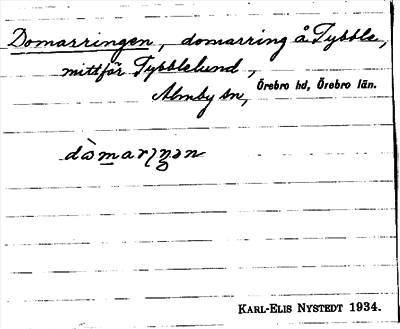 Domarringen, domarring å Tybble,
mittför Tybblelund,
Almby sn, Örebro hd, Örebro län.
dòmarıŋən
KARL-ELIS NYSTEDT 1934.